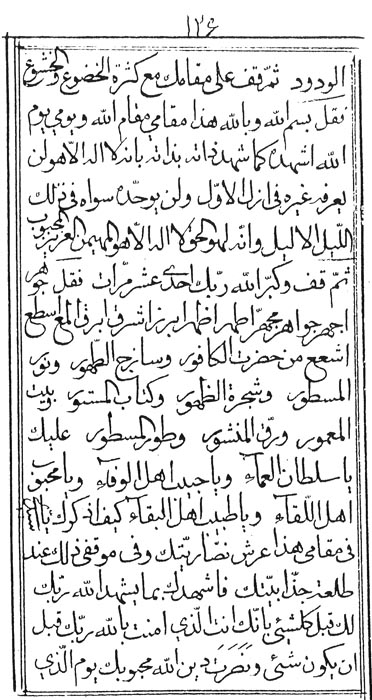 ١٣۶
الودود ثمّ قف على مقامك مع كثرة الخضوع والخشوع
فقل بسم الله وبالله هذا مقامي مقام الله ويومي يوم
الله اشهده كما شهد ذاته بذاته بانه لا اله الا هو لن
يعرفه غيره في ازل الاوّل ولن يوحّده سواه في ذلك
الليل الاليل وانّه لهو الحق لا اله الا هو المهيمن العزيز المحبوب
ثمّ قف وكبّر الله ربّك احدى عشر مرّات فقل جوهر
اجهر جواهر مجهّر اطهر اظهر ابرز اشرق ابرق المع اسطع
اشعع من حضرت الكافور وساذج الظهور ونور
المسطور وشجرة الظهور وكتاب المستور وبيت
المعمور ورق المنشور وطور المسطور عليك
يا سلطان العماء ويا حبيب اهل الوفاء ويا محبوب
اهل اللقاء ويا طبيب اهل البقاء كيف اذكرك يا الهي
في مقامي هذا عرش نضّاريّتك وفي موقفي ذلك عند
طلعة جذّابيّتك فاشهدك بما يشهد الله ربّك
لك قبل كلشيء بانّك انت الّذي امنت بالله ربّك قبل
ان يكون شيء ونصرت دين الله محبوبك يوم الّذي